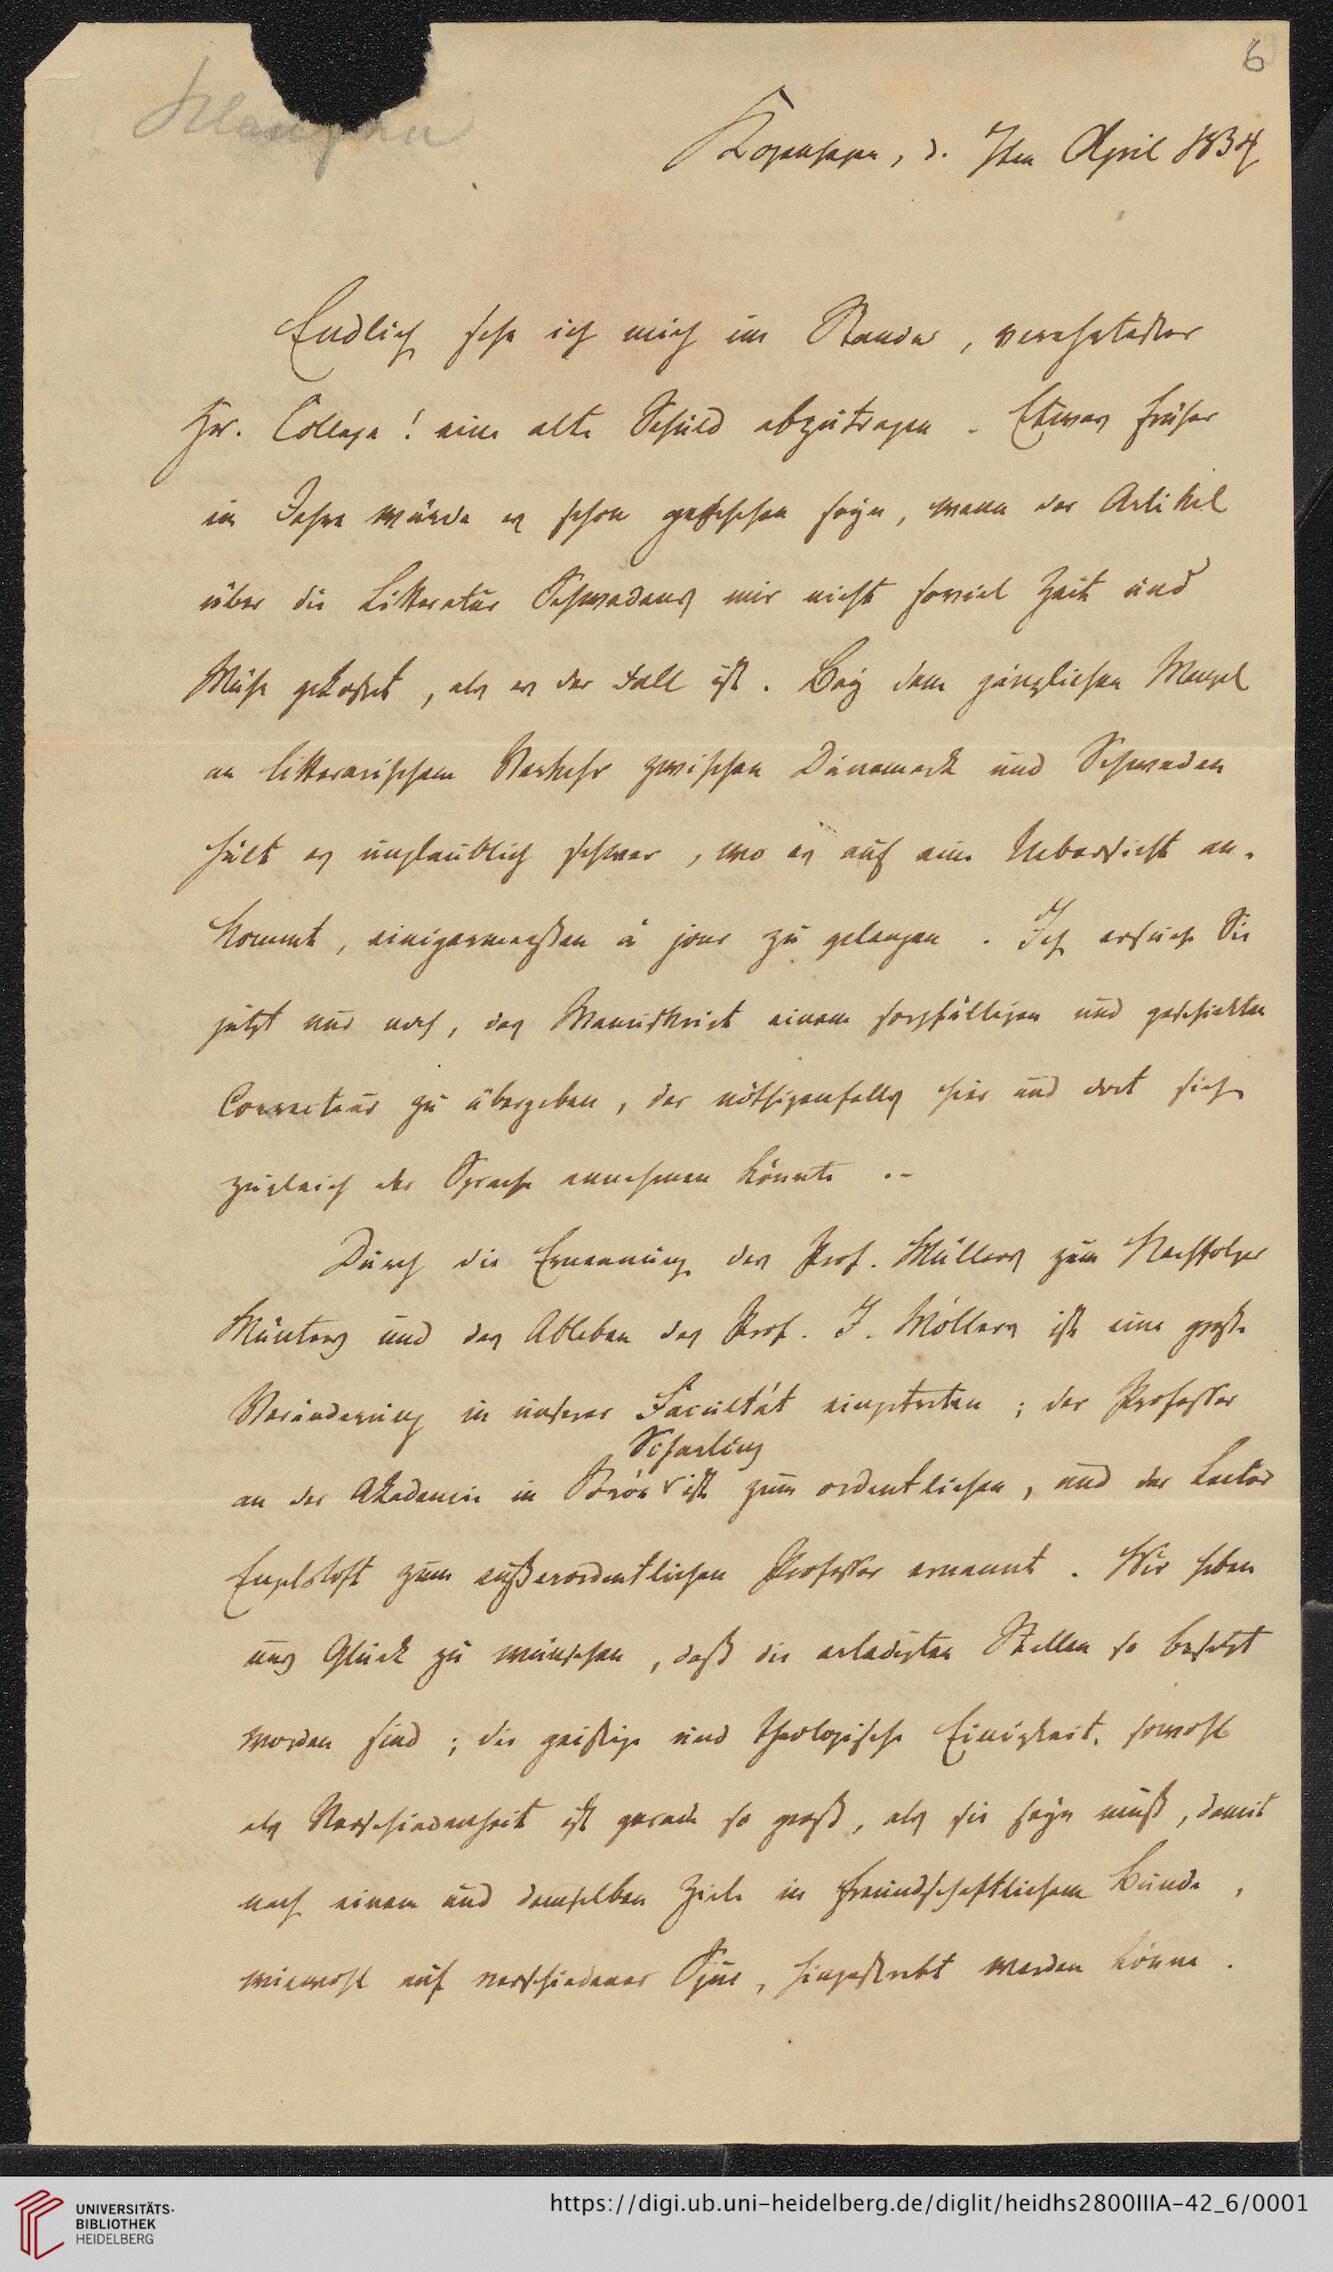 6
Kopenhagen, d. 7ten April 1834
Endlich sehe ich mich im Stande, verehrtester
Hr. College! eine alte Schuld abzutragen. Etwas früher
im Jahre würde es schon geschehen seyn, wenn der Artikel
über die Litteratur Schwedens mir nicht soviel Zeit und
Mühe gekostet, als es der Fall ist. Bey dem gänzlichen Mangel
an litterarischem Verkehr zwischen Dänemark und Schweden
hält es unglaublich schwer, wo es auf eine Uebersicht an-
kommt, einigermaßen à jour zu gelangen. Ich ersuche Sie
jetzt nur noch, das Manuskript einem sorgfältigen und geschickten
Correcteur zu übergeben, der nöthigenfalls hier und dort sich
zugleich der Sprache annehmen könnte. –
Durch die Ernennung des Prof. Müllers zum Nachfolger
Münters und das Ableben des Prof. J. Möllers ist eine große
Veränderung in unserer Facultät eingetreten; der Professor
Scharling
an der Akademie in Soröe ist zum ordentlichen, und der Lector
Engelstoft zum außerordentlichen Professor ernannt. Wir haben
uns Glück zu wünschen, daß die erledigten Stellen so besetzt
worden sind; die geistige und theologische Einigkeit, sowohl
als Verschiedenheit ist gerade so groß, als sie seyn muß, damit
nach einem und demselben Ziele in freundschaftlichem Bunde,
wiewohl auf verschiedener Spur, hingestrebt werden könne.
UNIVERSITÄTS-
BIBLIOTHEK
HEIDELBERG
https://digi.ub.uni-heidelberg.de/diglit/heidhs2800IIIA-42_6/0001